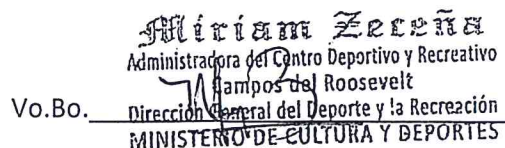 Miriam Zeceña
Administradora del Centro Deportivo y Recreativo
Campos del Roosevelt
Vo.Bo. Dirección General del Deporte y la Recreación
MINISTERIO DE CULTURA Y DEPORTES